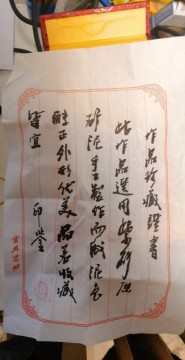 作品珍藏證書
此作品選用紫砂原
矿泥手工製作而成泥色
醇正外形优美品茗收藏
皆宜 印鉴